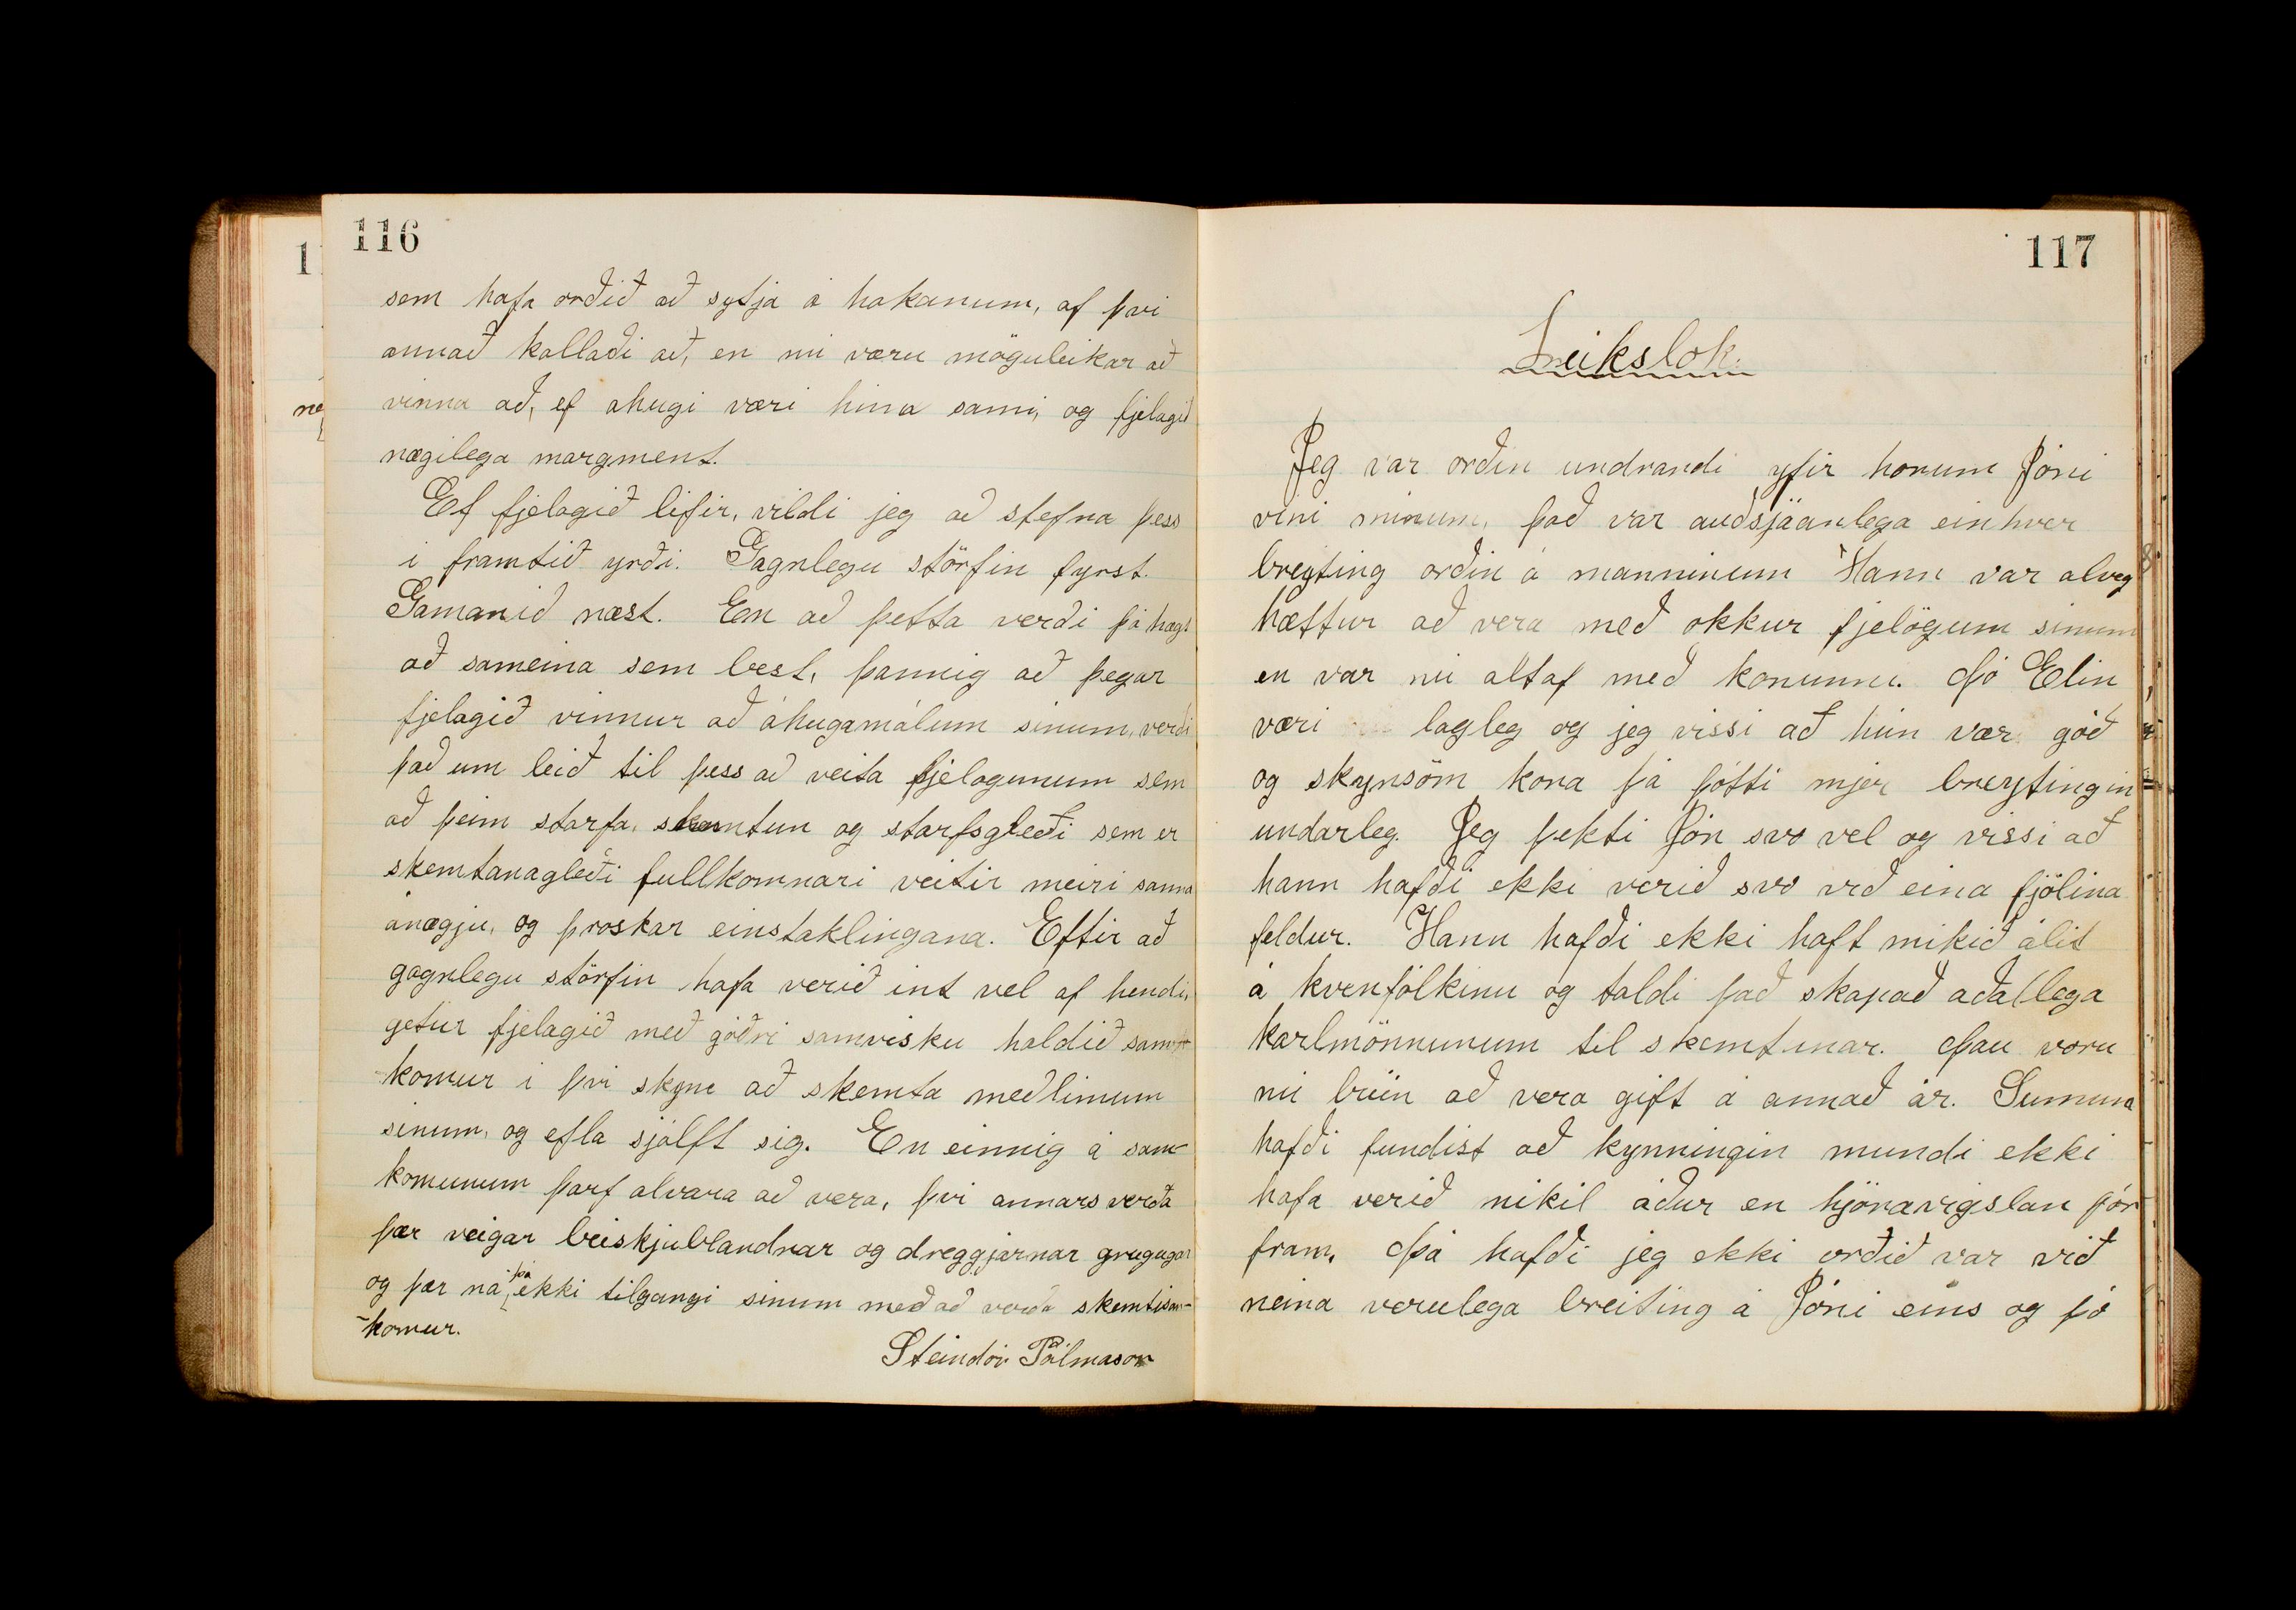 116
sem hafa orðið að sytja á hakanum, af því
annað kallaði að, en nú væru möguleikar að
vinna að, ef áhugi væri hinn sami, og fjelagið
nægilega margment.
Ef fjelagið lifir, vildi jeg að stefna þess
i framtið yrði. Gagnlegu störfin fyrst.
Gamanið næst. En að þetta verði þá hægt
að sameina sem best, þannig að þegar
fjelagið vinnur að áhugamálum sinum, verði
það um leið til þess að veita fjelogunum sem
að þeim starfa, skemtun og starfsgleði sem er
skemtanagleði fullkomnari veitir meiri sanna
ánægju, og þroskar einstaklingana. Eftir að
gagnlegu störfin hafa verið int vel af hendi,
getur fjelagið með góðri samvisku haldið sam-
komur i þvi skyni að skemta meðlimum
sinum, og efla sjálft sig. En einnig á sam-
komunum þarf alvara að vera, þvi annars verða
þær veigar beiskjublandnar og dreggjarnar grugugar
og þær ná þá ekki tilgangi sinum með að verða skemtisam-
-komur.
Steindór Pálmason
117
Leikslok.
Jeg var orðin undrandi yfir honum Jóni
vini minum, það var auðsjáanlega einhver
breyting orðin á manninum Hann var alveg
hættur að vera með okkur fjelögum sinum
en var nú altaf með konunni. Þó Elin
væri lagleg og jeg vissi að hún væri góð
og skynsöm kona þá þótti mjer breytingin
undarleg. Jeg þekti Jón svo vel og vissi að
hann hafði ekki verið svo við eina fjölina
feldur. Hann hafði ekki haft mikið álit
á kvenfólkinu og taldi það skapað aðallega
karlmönnunum til skemtunar. Þau voru
nú búin að vera gift á annað ár. Sumum
hafði fundist að kynningin mundi ekki
hafa verið mikil áður en hjónavigslan fór
fram. Þá hafði jeg ekki orðið var við
neina verulega breiting á Jóni eins og þó